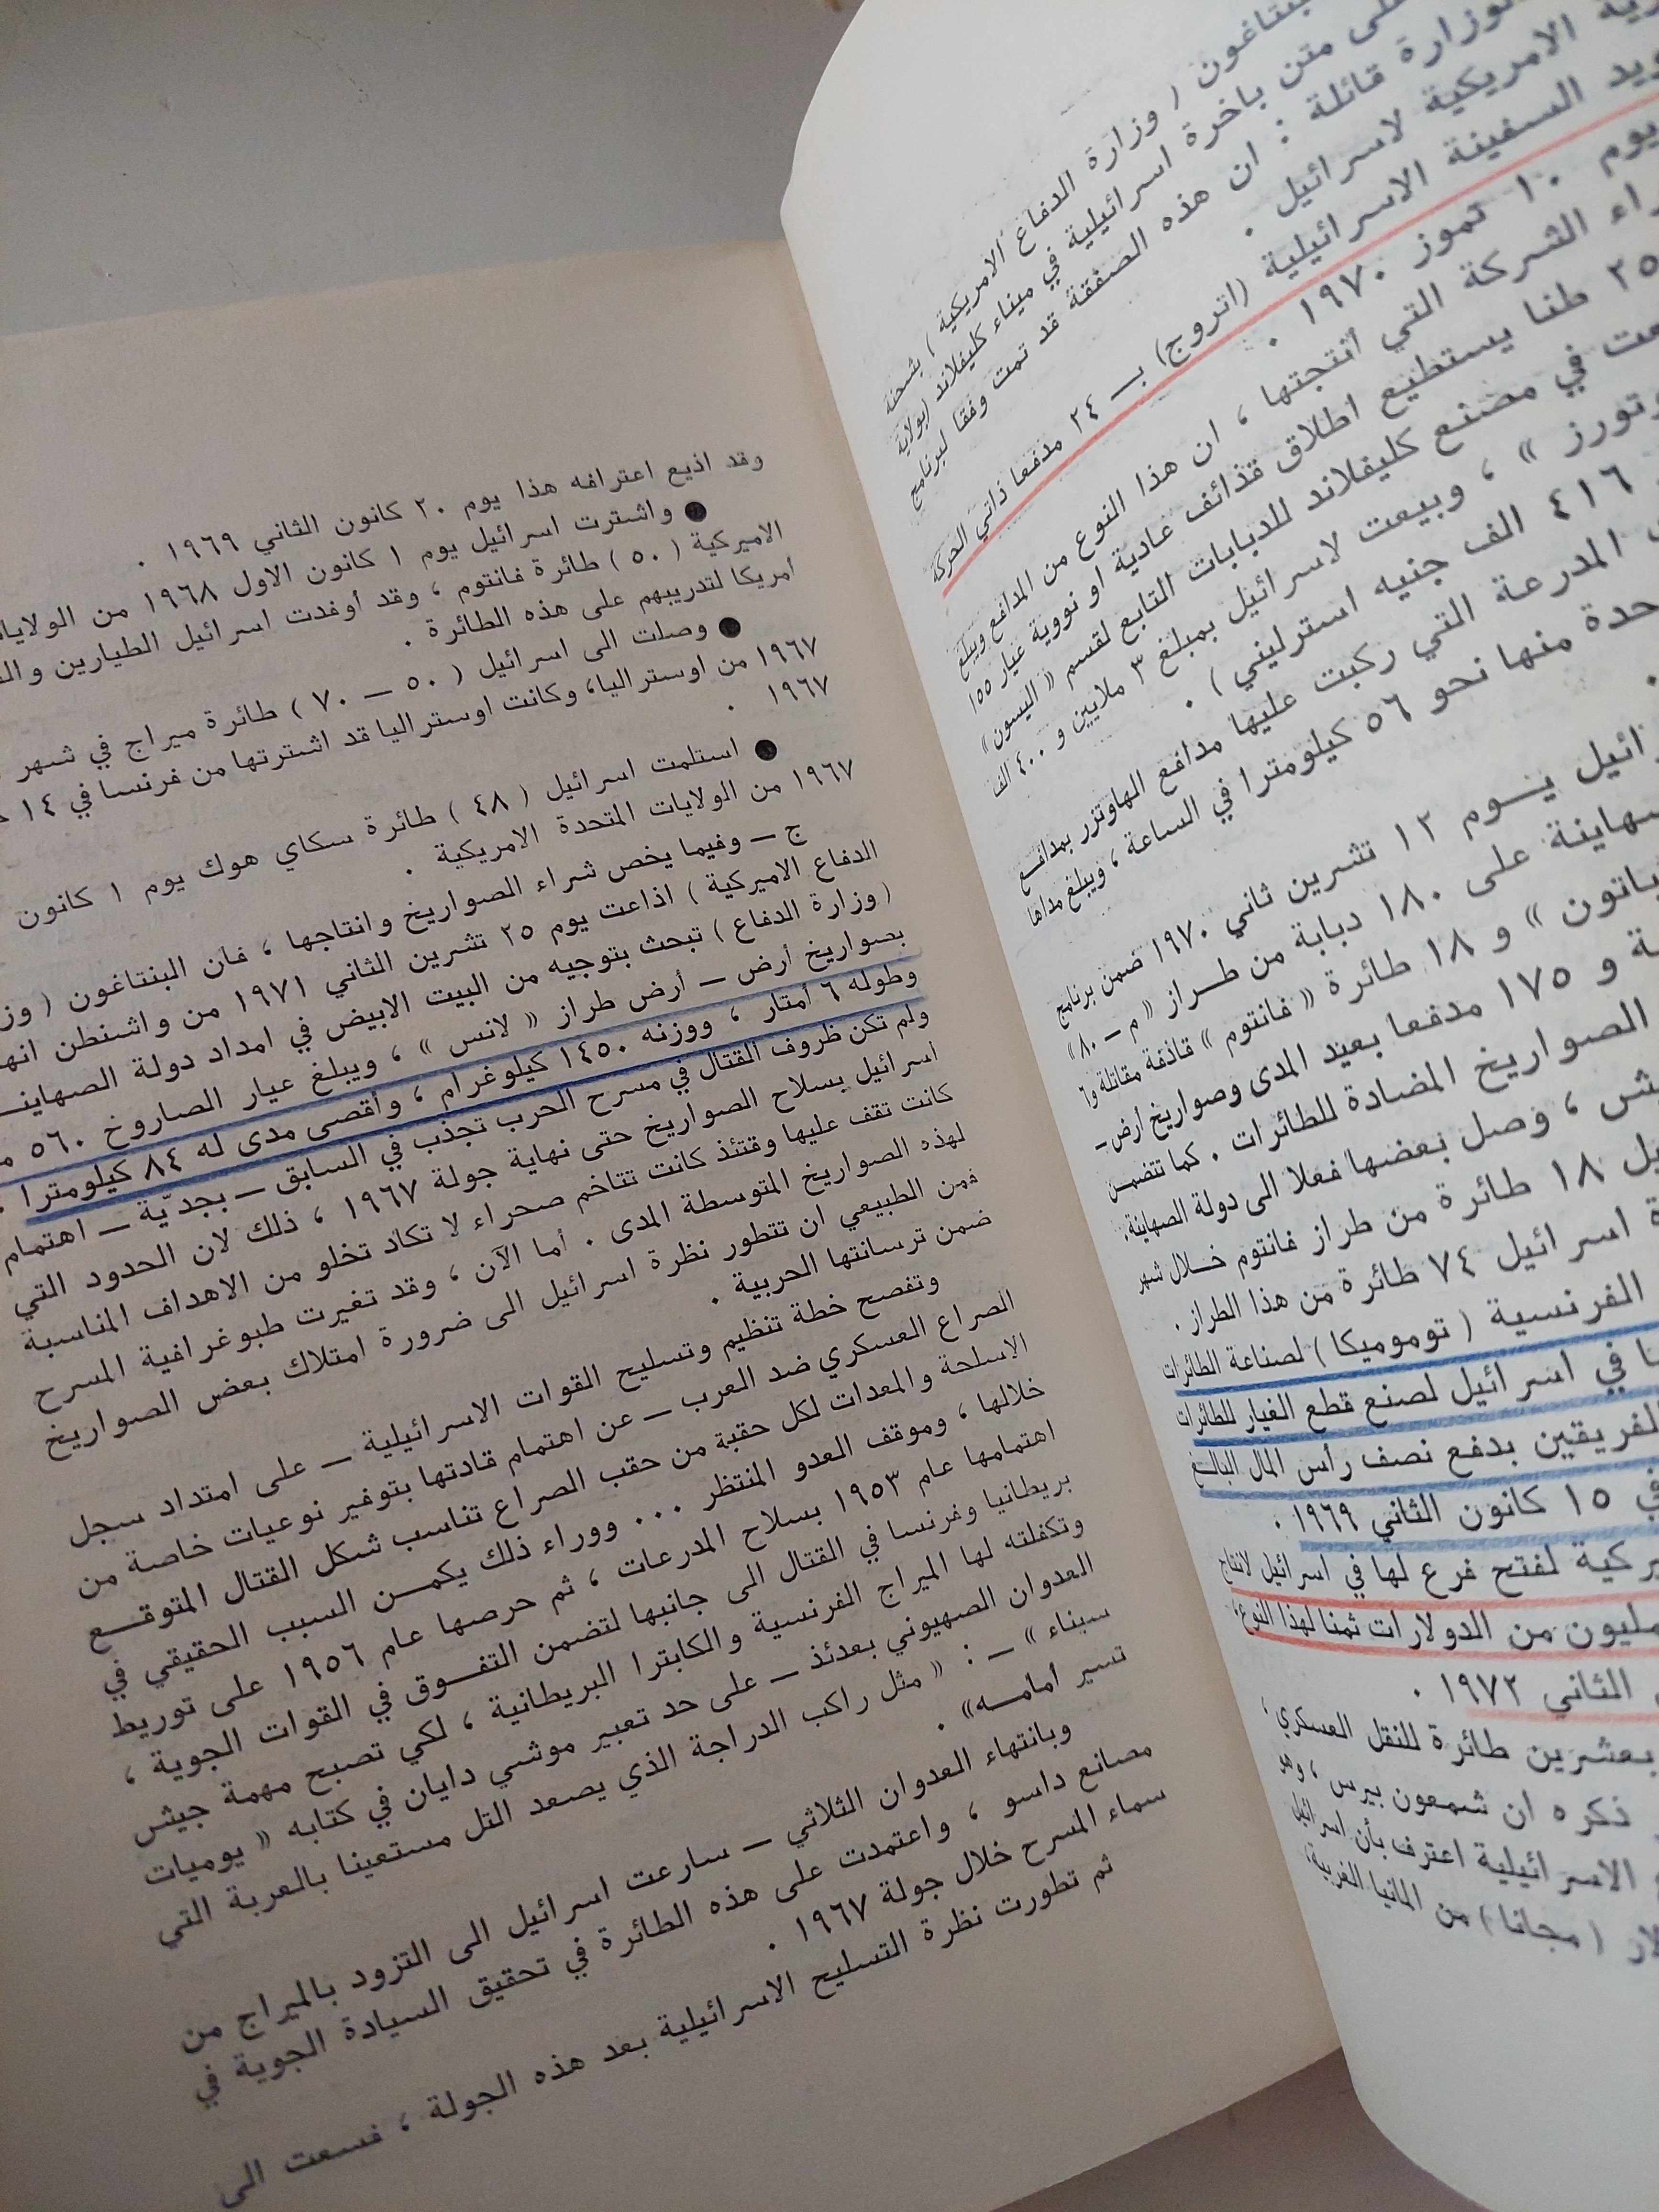 بنتاغون ( وزارة الدفاع الامريكية ) بشحنة
على متن باخرة اسرائيلية في ميناء كليفلاند (بولاية
الوزارة قائلة : ان هذه الصفقة قد تمت وفقا لبرنامج
الامريكية لاسرائيل .
السفينة الاسرائيلية (اتروج) بـ ٢٤ مدفعا ذاتي الحركة
يوم ١٠ تموز ١٩٧٠ .
الشركة التي أنتجتها ، ان هذا النوع من المدافع ويبلغ
٢٥ طنا يستطيع اطلاق قذائف عادية او نووية عيار ١٥٥
في مصنع كليفلاند للدبابات التابع لقسم « اليسون »
وتورز » ، وبيعت لاسرائيل بمبلغ ٣ ملايين و ٤٠٠ الف
٤١٦ الف جنيه استرليني ) .
المدرعة التي ركبت عليها مدافع الهاوتزر بمدافع
منها نحو ٥٦ كيلومترا في الساعة ، ويبلغ مداها
.
يــوم ١٢ تشرين ثاني ١٩٧٠ ضمن برنامج
على ١٨٠ دبابة من طــراز « م – ٨٠ »
باتون » و ١٨ طائرة « فانتوم » قاذفة مقاتلة و٦
و ١٧٥ مدفعا بعيد المدى وصواريخ أرض –
الصواريخ المضادة للطائرات . كما تتضمن
، وصل بعضها فعلا الى دولة الصهاينة .
١٨ طائرة من طراز فانتوم خــلال شهر
اسرائيل ٧٤ طائرة من هذا الطراز .
الفرنسية ( توموميكا ) لصناعة الطائرات
في اسرائيل لصنع قطع الغيار للطائرات
الفريقين بدفع نصف رأس المال البالغ
١٥ كانون الثاني ١٩٦٩ .
لفتح فرع لها في اسرائيل لانتاج
مليون من الدولارات ثمنا لهذا النوع
الثاني ١٩٧٢ .
بعشرين طائرة للنقل العسكري ،
ذكره ان شمعون بيرس ، وهو
الاسرائيلية اعترف بأن اسرائيل
( مجانا ) من المانيا الغربية
وقد اذيع اعترافه هذا يوم ٢٠ كانون الثاني ١٩٦٩ .
● واشترت اسرائيل يوم ١ كانون الاول ١٩٦٨ من
الاميركية ( ٥٠ ) طائرة فانتوم ، وقد أوفدت اسرائيل الطيارين
أمريكا لتدريبهم على هذه الطائرة .
● وصلت الى اسرائيل ( ٥٠ — ٧٠ ) طائرة ميراج في شهر
١٩٦٧ من اوستراليا، وكانت اوستراليا قد اشترتها من فرنسا في ١٤
١٩٦٧ .
● استلمت اسرائيل ( ٤٨ ) طائرة سكاي هوك يوم ١ كانون
١٩٦٧ من الولايات المتحدة الامريكية .
ج — وفيما يخص شراء الصواريخ وانتاجها ، فان البنتاغون ( وز
الدفاع الاميركية ) اذاعت يوم ٢٥ تشرين الثاني ١٩٧١ من واشنطن انه
( وزارة الدفاع ) تبحث بتوجيه من البيت الابيض في امداد دولة الصهاينـ
بصواريخ أرض – أرض طراز « لانس » ، ويبلغ عيار الصاروخ ٥٦٠
وطوله ٦ أمتار ، ووزنه ١٤٥٠ كيلوغرام ، وأقصى مدى له ٨٤ كيلومترا .
ولم تكن ظروف القتال في مسرح الحرب تجذب في السابق — بجديّة — اهتمام
اسرائيل بسلاح الصواريخ حتى نهاية جولة ١٩٦٧ ، ذلك لان الحدود التي
كانت تقف عليها وقتئذ كانت تتاخم صحراء لا تكاد تخلو من الاهداف المناسبة
لهذه الصواريخ المتوسطة المدى . أما الآن ، وقد تغيرت طبوغرافية المسرح
فمن الطبيعي ان تتطور نظرة اسرائيل الى ضرورة امتلاك بعض الصواريخ
ضمن ترسانتها الحربية .
وتفصح خطة تنظيم وتسليح القوات الاسرائيلية — على امتداد سجل
الصراع العسكري ضد العرب — عن اهتمام قادتها بتوفير نوعيات خاصة من
الاسلحة والمعدات لكل حقبة من حقب الصراع تناسب شكل القتال المتوقــع
خلالها ، وموقف العدو المنتظر ... ووراء ذلك يكمــن السبب الحقيقي في
اهتمامها عام ١٩٥٣ بسلاح المدرعات ، ثم حرصها عام ١٩٥٦ على توريط
بريطانيا وفرنسا في القتال الى جانبها لتضمن التفــوق في القوات الجوية ،
وتكفلته لها الميراج الفرنسية والكابترا البريطانية ، لكي تصبح مهمة جيش
العدوان الصهيوني بعدئذ — على حد تعبير موشي دايان في كتابه « يوميات
سيناء » — : « مثل راكب الدراجة الذي يصعد التل مستعينا بالعربة التي
تسير امامــه» .
وبانتهاء العدوان الثلاثي — سارعت اسرائيل الى التزود بالميراج من
مصانع داسو ، واعتمدت على هذه الطائرة في تحقيق السيادة الجوية في
سماء المسرح خلال جولة ١٩٦٧ .
ثم تطورت نظرة التسليح الاسرائيلية بعد هذه الجولة ، فسعت الى